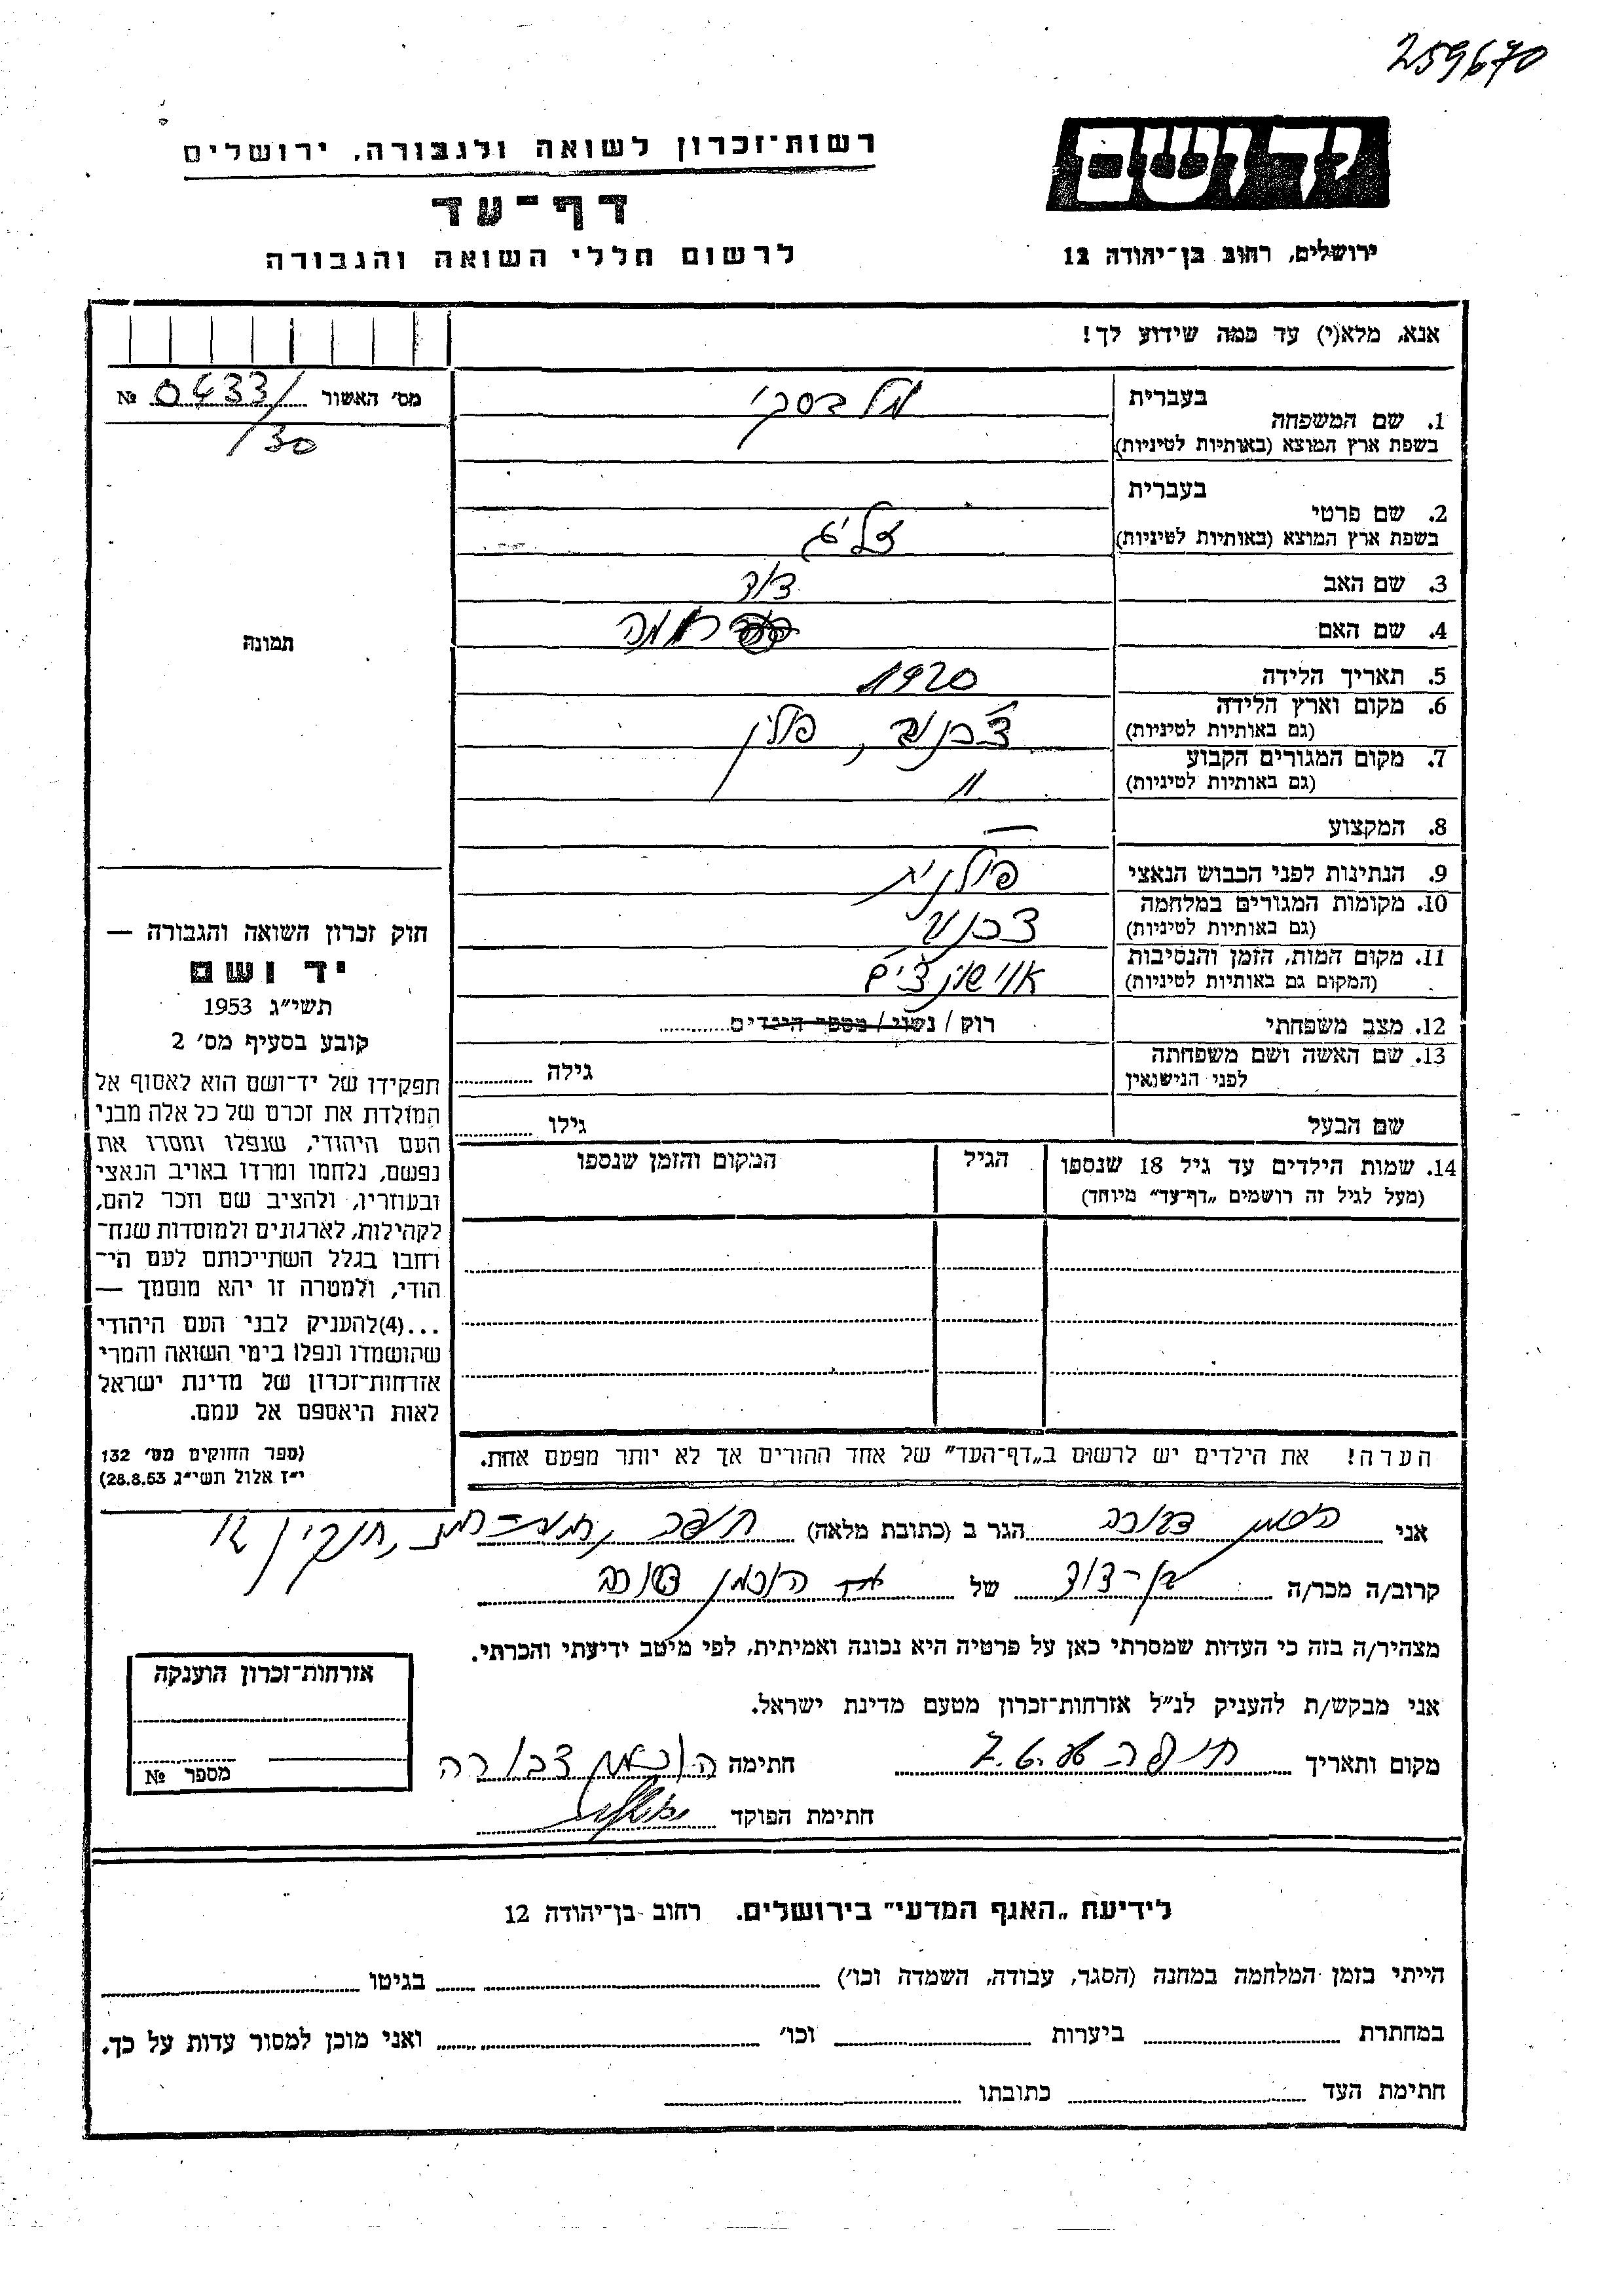 259670
יד ושם
רשות־זכרון לשואה ולגבורה, ירושלים
דף־עד
ירושלים, רחוב בן־יהודה 12
לרשום חללי השואה והגבורה
אנא, מלא(י) עד כמה שידוע לך!
מס׳ האשור № 0433/
/30
תמונה
בעברית
1. שם המשפחה
בשפת ארץ המוצא (באותיות לטיניות)
בעברית
2. שם פרטי
בשפת ארץ המוצא (באותיות לטיניות)
זליג
3. שם האב דוד
4. שם האם
5. תאריך הלידה 1920
6. מקום וארץ הלידה
(גם באותיות לטיניות) פולין
7. מקום המגורים הקבוע
(גם באותיות לטיניות) "
8. המקצוע —
9. הנתינות לפני הכבוש הנאצי פולנית
10. מקומות המגורים במלחמה
(גם באותיות לטיניות)
11. מקום המות, הזמן והנסיבות
(המקום גם באותיות לטיניות) אוישוויצים
12. מצב משפחתי רוק / נשוי / מספר הילדים
13. שם האשה ושם משפחתה
לפני הנישואין גילה
שם הבעל גילו
14. שמות הילדים עד גיל 18 שנספו הגיל המקום והזמן שנספו
(מעל לגיל זה רושמים „דף־עד״ מיוחד)
הערה! את הילדים יש לרשום ב„דף־העד״ של אחד ההורים אך לא יותר מפעם אחת.
חוק זכרון השואה והגבורה —
יד ושם
תשי״ג 1953
קובע בסעיף מס׳ 2
תפקידו של יד־ושם הוא לאסוף אל
המולדת את זכרם של כל אלה מבני
העם היהודי, שנפלו ומסרו את
נפשם, נלחמו ומרדו באויב הנאצי
ובעוזריו, ולהציב שם וזכר להם,
לקהילות, לארגונים ולמוסדות שנח־
רחבו בגלל השתייכותם לעם הי־
הודי, ולמטרה זו יהא מוסמך —
...(4)להעניק לבני העם היהודי
שהושמדו ונפלו בימי השואה והמרי
אזרחות־זכרון של מדינת ישראל
לאות היאספם אל עמם.
(ספר החוקים מס׳ 132
י״ז אלול תשי״ג 28.8.53)
אני דבורה הגר ב (כתובת מלאה) חיפה, חנקין
קרוב/ה מכר/ה בן-דוד של הוכמן דבורה
מצהיר/ה בזה כי העדות שמסרתי כאן על פרטיה היא נכונה ואמיתית, לפי מיטב ידיעתי והכרתי.
אני מבקש/ת להעניק לנ״ל אזרחות־זכרון מטעם מדינת ישראל.
מקום ותאריך חיפה חתימה הוכמן דבורה
חתימת הפוקד
אזרחות־זכרון הוענקה
מספר №
לידיעת „האגף המדעי״ בירושלים. רחוב בן־יהודה 12
הייתי בזמן המלחמה במחנה (הסגר, עבודה, השמדה וכו׳) בגיטו
במחתרת ביערות וכו׳ ואני מוכן למסור עדות על כך.
חתימת העד כתובתו